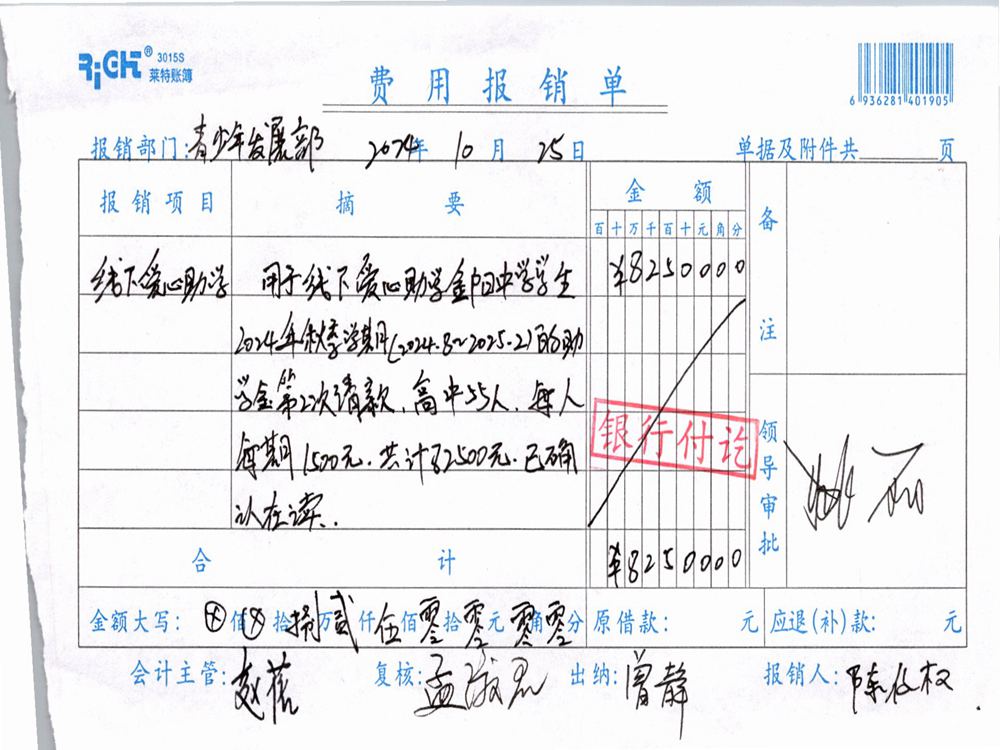 RiGHT® 3015S
莱特账簿
费用报销单
6 936281 401905
报销部门:青少年发展部 2024年 10月 25日 单据及附件共 页
报销项目 摘要 金额 备注
百十万千百十元角分
线下爱心助学 用于线下爱心助学金阳中学学生 ¥8250000
2024年秋季学期(2024.8~2025.2)的助
学金第2次请款,高中55人,每人
每期1500元.共计82500元.已确
认在读.
银行付讫
领导审批
合计 ¥8250000
金额大写:⊗佰⊗拾捌万贰仟伍佰零拾零元零角零分 原借款: 元 应退(补)款: 元
会计主管: 复核:孟淑君 出纳:曾静 报销人: